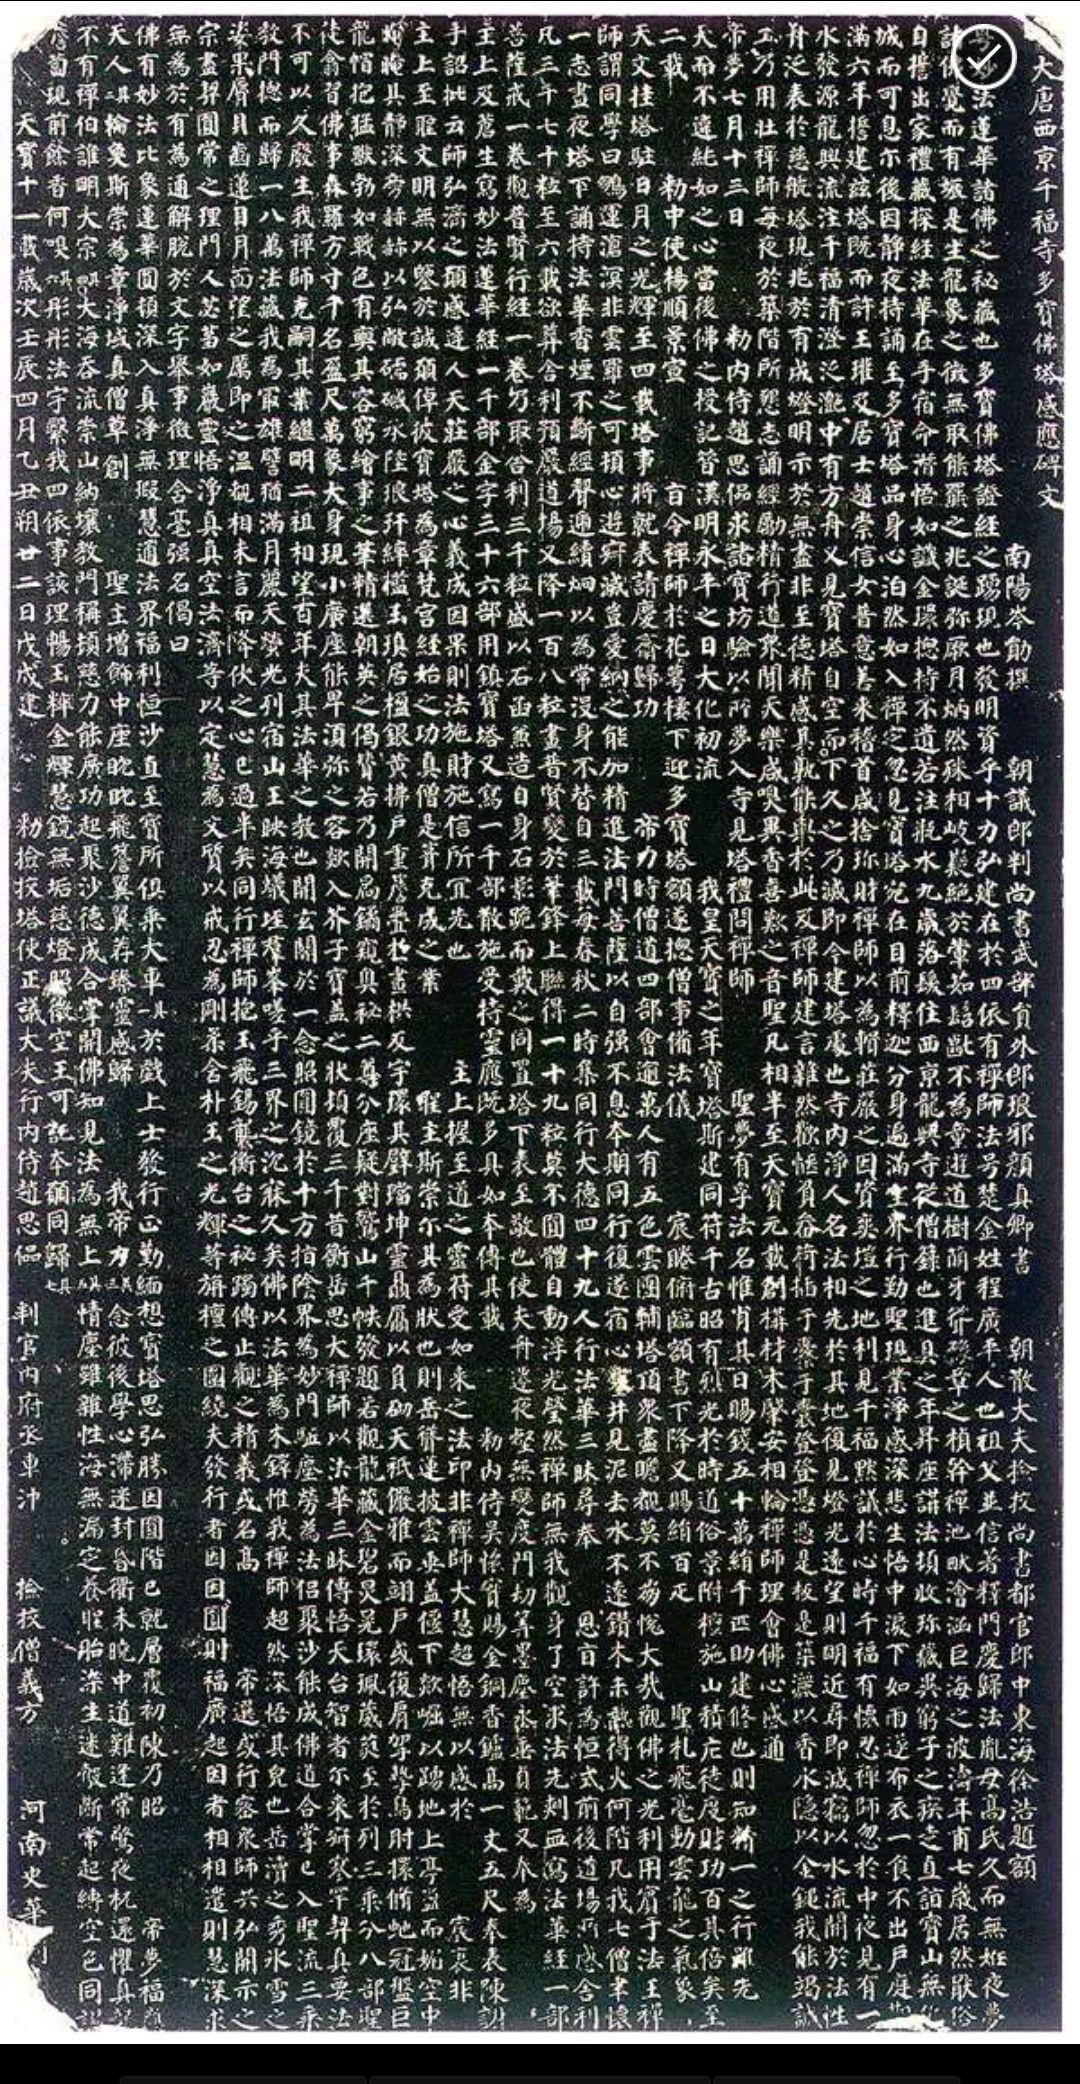 大唐西京千福寺多寶佛塔感應碑文
南陽岑勛撰 朝議郎判尚書武部員外郎琅邪顏真卿書 朝散大夫檢校尚書都官郎中東海徐浩題額
妙法蓮華諸佛之祕藏也多寶佛塔證經之踴現也發明資乎十力弘建在於四依有禪師法号楚金姓程廣平人也祖父並信著釋門慶歸法胤母高氏久而無姙夜夢
諸佛覺而有娠是生龍象之徵無取熊羆之兆誕弥厥月炳然殊相岐嶷絕於葷茹髫齔不為童遊道樹萌牙聳豫章之楨幹禪池畎澮涵巨海之波濤年甫七歲居然猒俗
自誓出家禮藏探經法華在手宿命潛悟如識金環揔持不遺若注瓶水九歲落髮住西京龍興寺從僧籙也進具之年昇座講法頓收珍藏異窮子之疾走直詣寶山無化
城而可息尒後因靜夜持誦至多寶塔品身心泊然如入禪定忽見寶塔宛在目前釋迦分身遍滿空界行勤聖現業淨感深悲生悟中淚下如雨遂布衣一食不出戶庭期
滿六年誓建茲塔既而許王瓘及居士趙崇信女普意善來稽首咸捨珍財禪師以為輯莊嚴之因資爽塏之地利見千福默議於心時千福有懷忍禪師忽於中夜見有一
水發源龍興流注千福清澄泛灩中有方舟又見寶塔自空而下久之乃滅即今建塔處也寺內淨人名法相先於其地復見燈光遠望則明近尋即滅竊以水流開於法性
舟泛表於慈航塔現兆於有成燈明示於無盡非至德精感其孰能與於此及禪師建言雜然歡愜負畚荷插于橐于囊登登憑憑是板是築灑以香水隱以金鎚我能竭誠
工乃用壯禪師每夜於築階所懇志誦經勵精行道眾聞天樂咸嗅異香喜歎之音聖凡相半至天寶元載創構材木肇安相輪禪師理會佛心感通
帝夢七月十三日 勑內侍趙思偘求諸寶坊驗以所夢入寺見塔禮問禪師 聖夢有孚法名惟肖其日賜錢五十萬絹千匹助建修也則知精一之行雖先
天而不違純如之心當後佛之授記昔漢明永平之日大化初流 我皇天寶之年寶塔斯建同符千古昭有烈光於時道俗景附檀施山積庀徒度財功百其倍矣至
二載 勑中使楊順景宣 旨令禪師於花萼樓下迎多寶塔額遂揔僧事備法儀 宸睠俯臨額書下降又賜絹百疋 聖札飛毫動雲龍之氣象
天文挂塔駐日月之光輝至四載塔事將就表請慶齋歸功 帝力時僧道四部會逾萬人有五色雲團輔塔頂眾盡瞻睹莫不崩悅大哉觀佛之光利用賓于法王禪
師謂同學曰鵬運滄溟非雲羅之可頓心遊寂滅豈愛網之能加精進法門菩薩以自强不息本期同行復遂宿心鑿井見泥去水不遠鑽木未熱得火何階凡我七僧聿懷
一志晝夜塔下誦持法華香煙不斷經聲遞續炯以為常沒身不替自三載每春秋二時集同行大德四十九人行法華三昧尋奉 恩旨許為恒式前後道場所感舍利
凡三千七十粒至六載欲葬舍利預嚴道場又降一百八粒畫普賢變於筆鋒上聯得一十九粒莫不圓體自動浮光瑩然禪師無我觀身了空求法先刺血寫法華經一部
菩薩戒一卷觀普賢行經一卷乃取舍利三千粒盛以石函兼造自身石影跪而戴之同置塔下表至敬也使夫舟遷夜壑無變度門劫筭墨塵永垂貞範又奉為
主上及蒼生寫妙法蓮華經一千部金字三十六部用鎮寶塔又寫一千部散施受持靈應既多具如本傳其載 勑內侍吳懷實賜金銅香鑪高一丈五尺奉表陳謝
手詔批云師弘濟之願感達人天莊嚴之心義成因果則法施財施信所宜先也 主上握至道之靈符受如來之法印非禪師大慧超悟無以感於 宸衷非
主上至聖文明無以鑒於誠願倬彼寶塔為章梵宮經始之功真僧是葺克成之業 聖主斯崇尒其為狀也則岳聳蓮披雲垂蓋偃下欻崛以踴地上亭盈而媚空中
晻晻其靜深旁赫赫以弘敞礝碱承陛琅玕綷檻玉瑱居楹銀黃拂戶重簷疊於畫栱反宇環其璧璫坤靈贔屓以負砌天祇儼雅而翊戶或復肩挐摯鳥肘擐脩虵冠盤巨
龍帽抱猛獸勃如戰色有奭其容窮繪事之筆精選朝英之偈贊若乃開扃鐍窺奧祕二尊分座疑對鷲山千帙發題若觀龍藏金碧炅晃環珮葳蕤至於列三乘分八部聖
徒翕習佛事森羅方寸千名盈尺萬象大身現小廣座能卑須弥之容欻入芥子寶蓋之狀頓覆三千昔衡岳思大禪師以法華三昧傳悟天台智者尒來寂寥罕契真要法
不可以久廢生我禪師克嗣其業繼明二祖相望百年夫其法華之教也開玄關於一念照圓鏡於十方指陰界為妙門駈塵勞為法侶聚沙能成佛道合掌已入聖流三乘
教門揔而歸一八萬法藏我為最雄譬猶滿月麗天螢光列宿山王映海蟻垤群峯嗟乎三界之沉寐久矣佛以法華為木鐸惟我禪師超然深悟其皃也岳瀆之秀冰雪之
姿果脣貝齒蓮目月面望之厲即之溫覩相未言而降伏之心已過半矣同行禪師抱玉飛錫襲衡台之祕躅傳止觀之精義或名高 帝選或行密眾師共弘開示之
宗盡契圓常之理門人苾蒭如巖靈悟淨真真空法濟等以定慧為文質以戒忍為剛柔含朴玉之光輝等旃檀之圍繞夫發行者因因圓則福廣起因者相相遣則慧深求
無為於有為通解脫於文字舉事徵理含毫强名偈曰
佛有妙法比象蓮華圓頓深入真淨無瑕慧通法界福利恒沙直至寶所俱乘大車其一於戲上士發行正勤緬想寶塔思弘勝因圓階已就層覆初陳乃昭 帝夢福應
天人其二輪奐斯崇為章淨域真僧草創 聖主增飾中座眈眈飛簷翼翼荐臻靈感歸 我帝力其三念彼後學心滯迷封昏衢未曉中道難逢常驚夜杌還懼真龍
不有禪伯誰明大宗其四大海吞流崇山納壤教門稱頓慈力能廣功起聚沙德成合掌開佛知見法為無上其五情塵雖雜性海無漏定養聖胎染生迷鷇斷常起縛空色同謬
薝蔔現前餘香何嗅其六彤彤法宇繄我四依事該理暢玉粹金輝慧鏡無垢慈燈照微空王可託本願同歸其七
天寶十一載歲次壬辰四月乙丑朔廿二日戊戌建 勑檢校塔使正議大夫行內侍趙思偘 判官內府丞車沖 檢校僧義方 河南史華